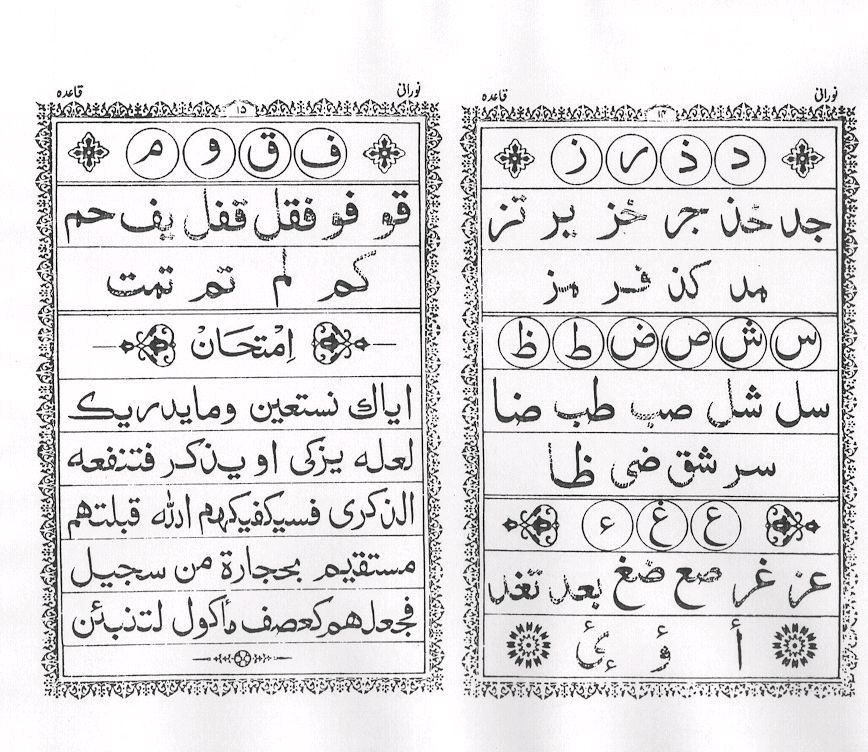 نورانی قاعده
۱۴
د ذ ر ز
جد خذ جر خز یر تز
مد کذ فر مز
س ش ص ض ط ظ
سل شل صب طب ضا
سر شق ضى ظا
ع غ ء
عز غر صع ضغ بعد تغد
أ ؤ ئ ء
نورانی قاعده
۱۵
ف ق و م
قو فو فقل قفل یف حم
کم لم تم تمت
اِمْتِحَانْ
ایاك نستعین وما یدریك
لعله یزکی او یذکر فتنفعه
الذکری فسیکفیکهم الله قبلتهم
مستقیم بحجارة من سجیل
فجعلهم کعصف مأکول لتنبئن